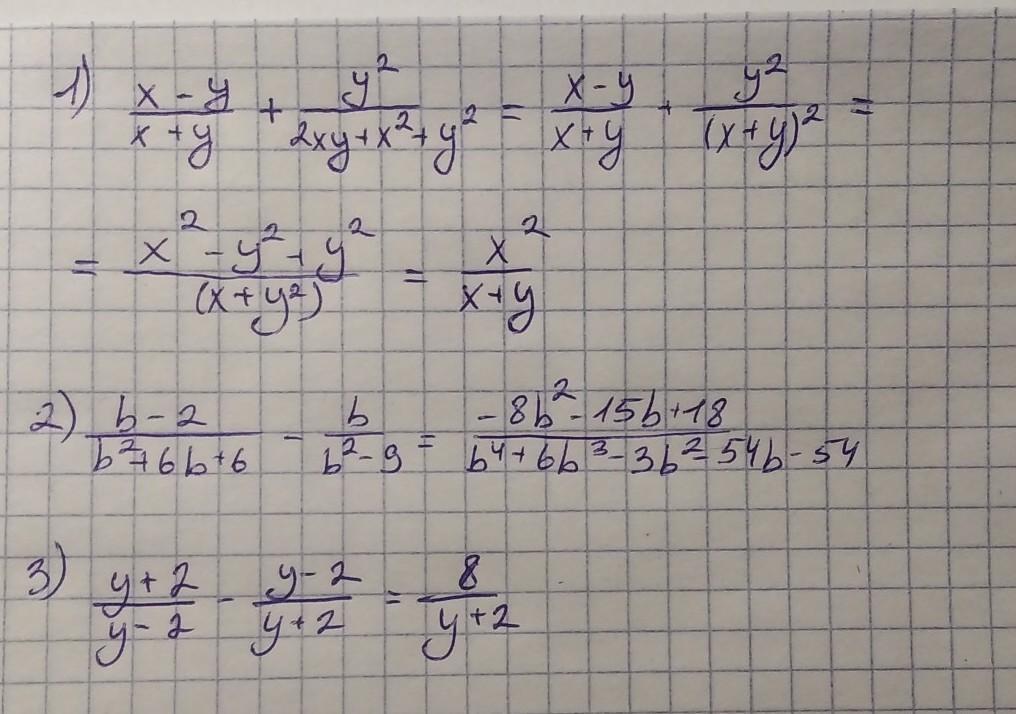 1) (x - y)/(x + y) + y²/(2xy + x² + y²) = (x - y)/(x + y) + y²/(x + y)² =
= (x² - y² + y²)/(x + y²) = x²/(x + y)
2) (b - 2)/(b² + 6b + 6) - b/(b² - 9) = (-8b² - 15b + 18)/(b⁴ + 6b³ - 3b² - 54b - 54)
3) (y + 2)/(y - 2) - (y - 2)/(y + 2) = 8/(y + 2)